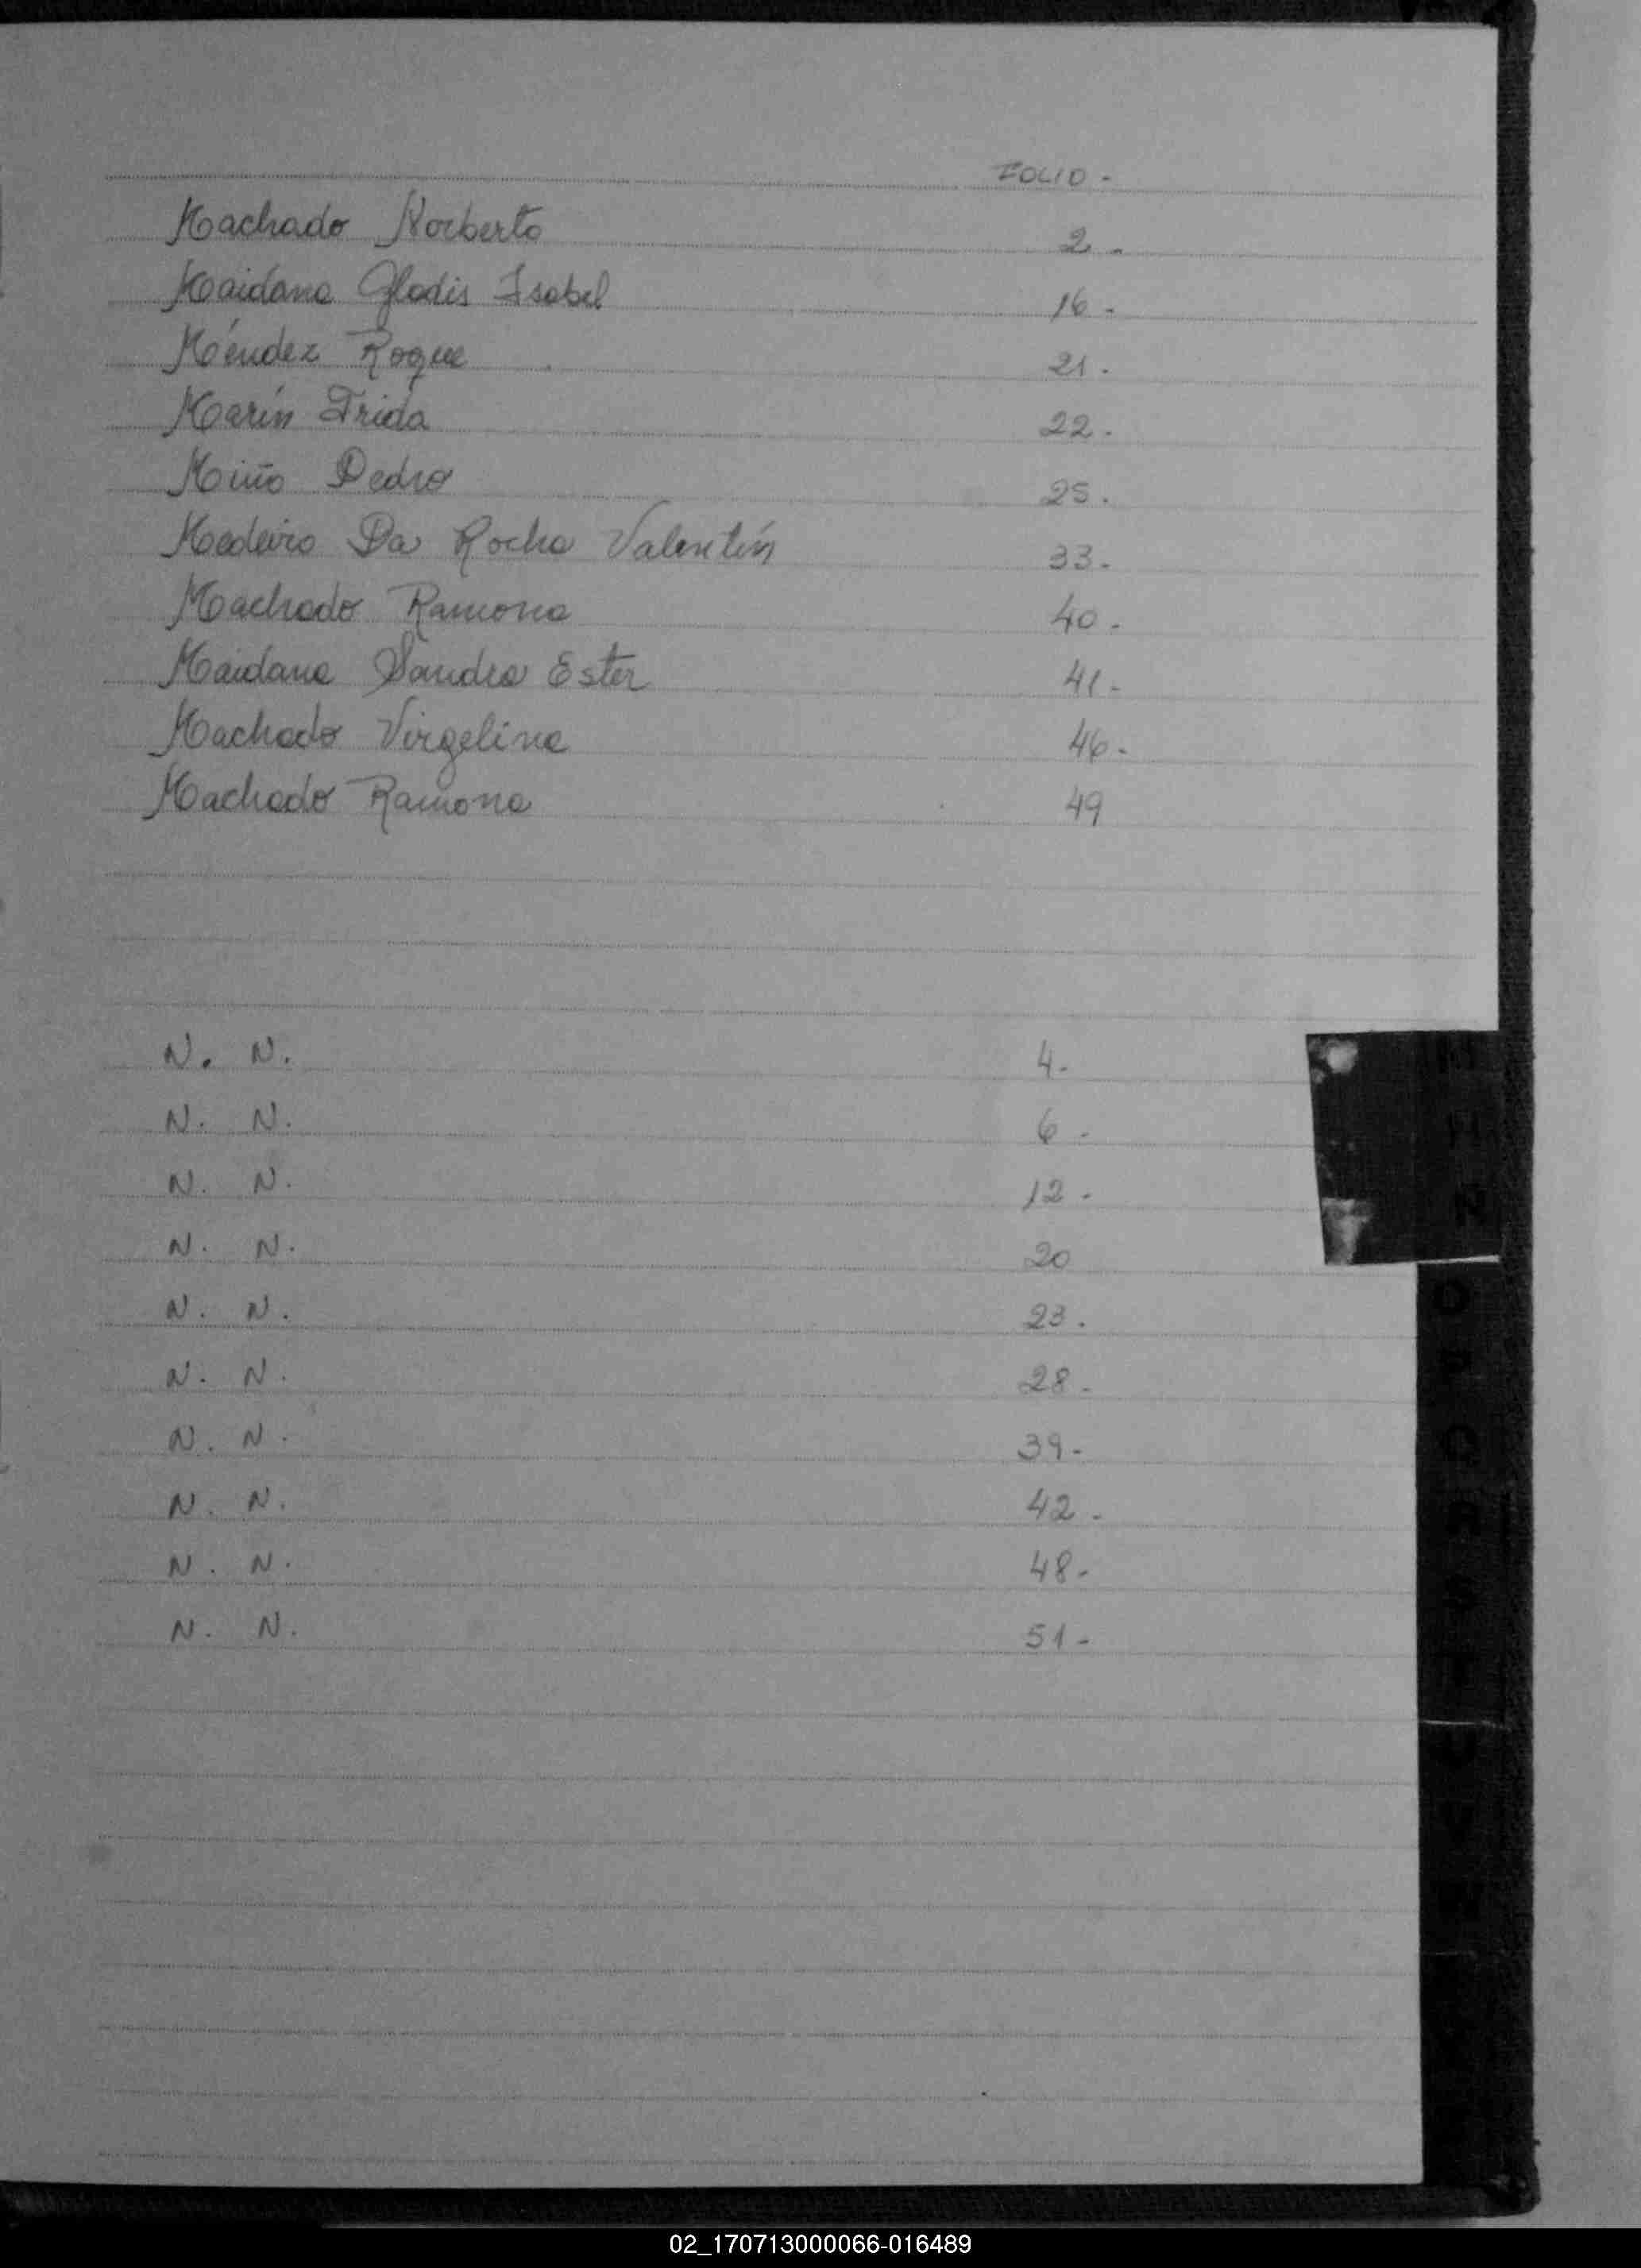 FOLIO -
Machado Norberto 2 -
Maidana Gladis Isabel 16 -
Méndez Roque 21 .
Marín Frida 22 .
Miño Pedro 25 .
Medeiro Da Rocha Valentín 33 -
Machado Ramona 40 -
Maidana Sandra Ester 41 -
Machado Virgelina 46 -
Machado Ramona 49
N. N. 4 -
N. N. 6 -
N. N. 12 -
N. N. 20
N. N. 23 .
N. N. 28 -
N. N. 39 -
N. N. 42 -
N. N. 48 -
N. N. 51 -
N
O
P
Q
R
S
T
U
V
02_170713000066-016489